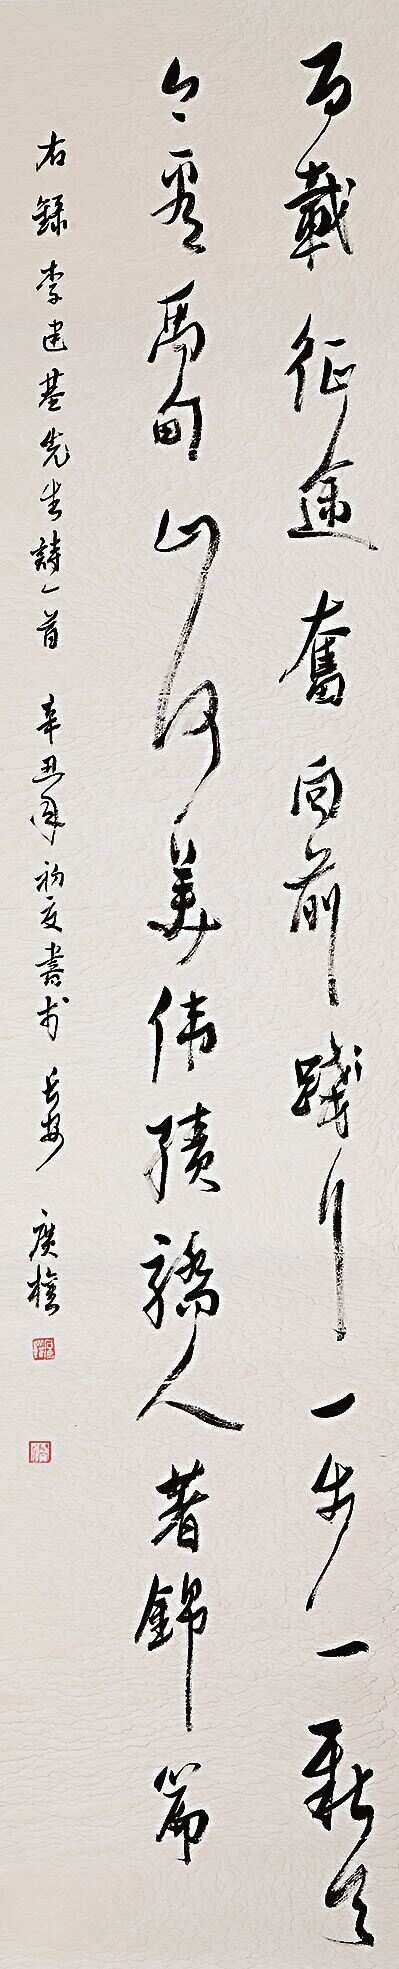 百載征途奮向前踐行一步一新天
今看禹甸山河美伟績驕人著錦篇
右錄李建基先生詩一首 辛丑年初夏書於長安